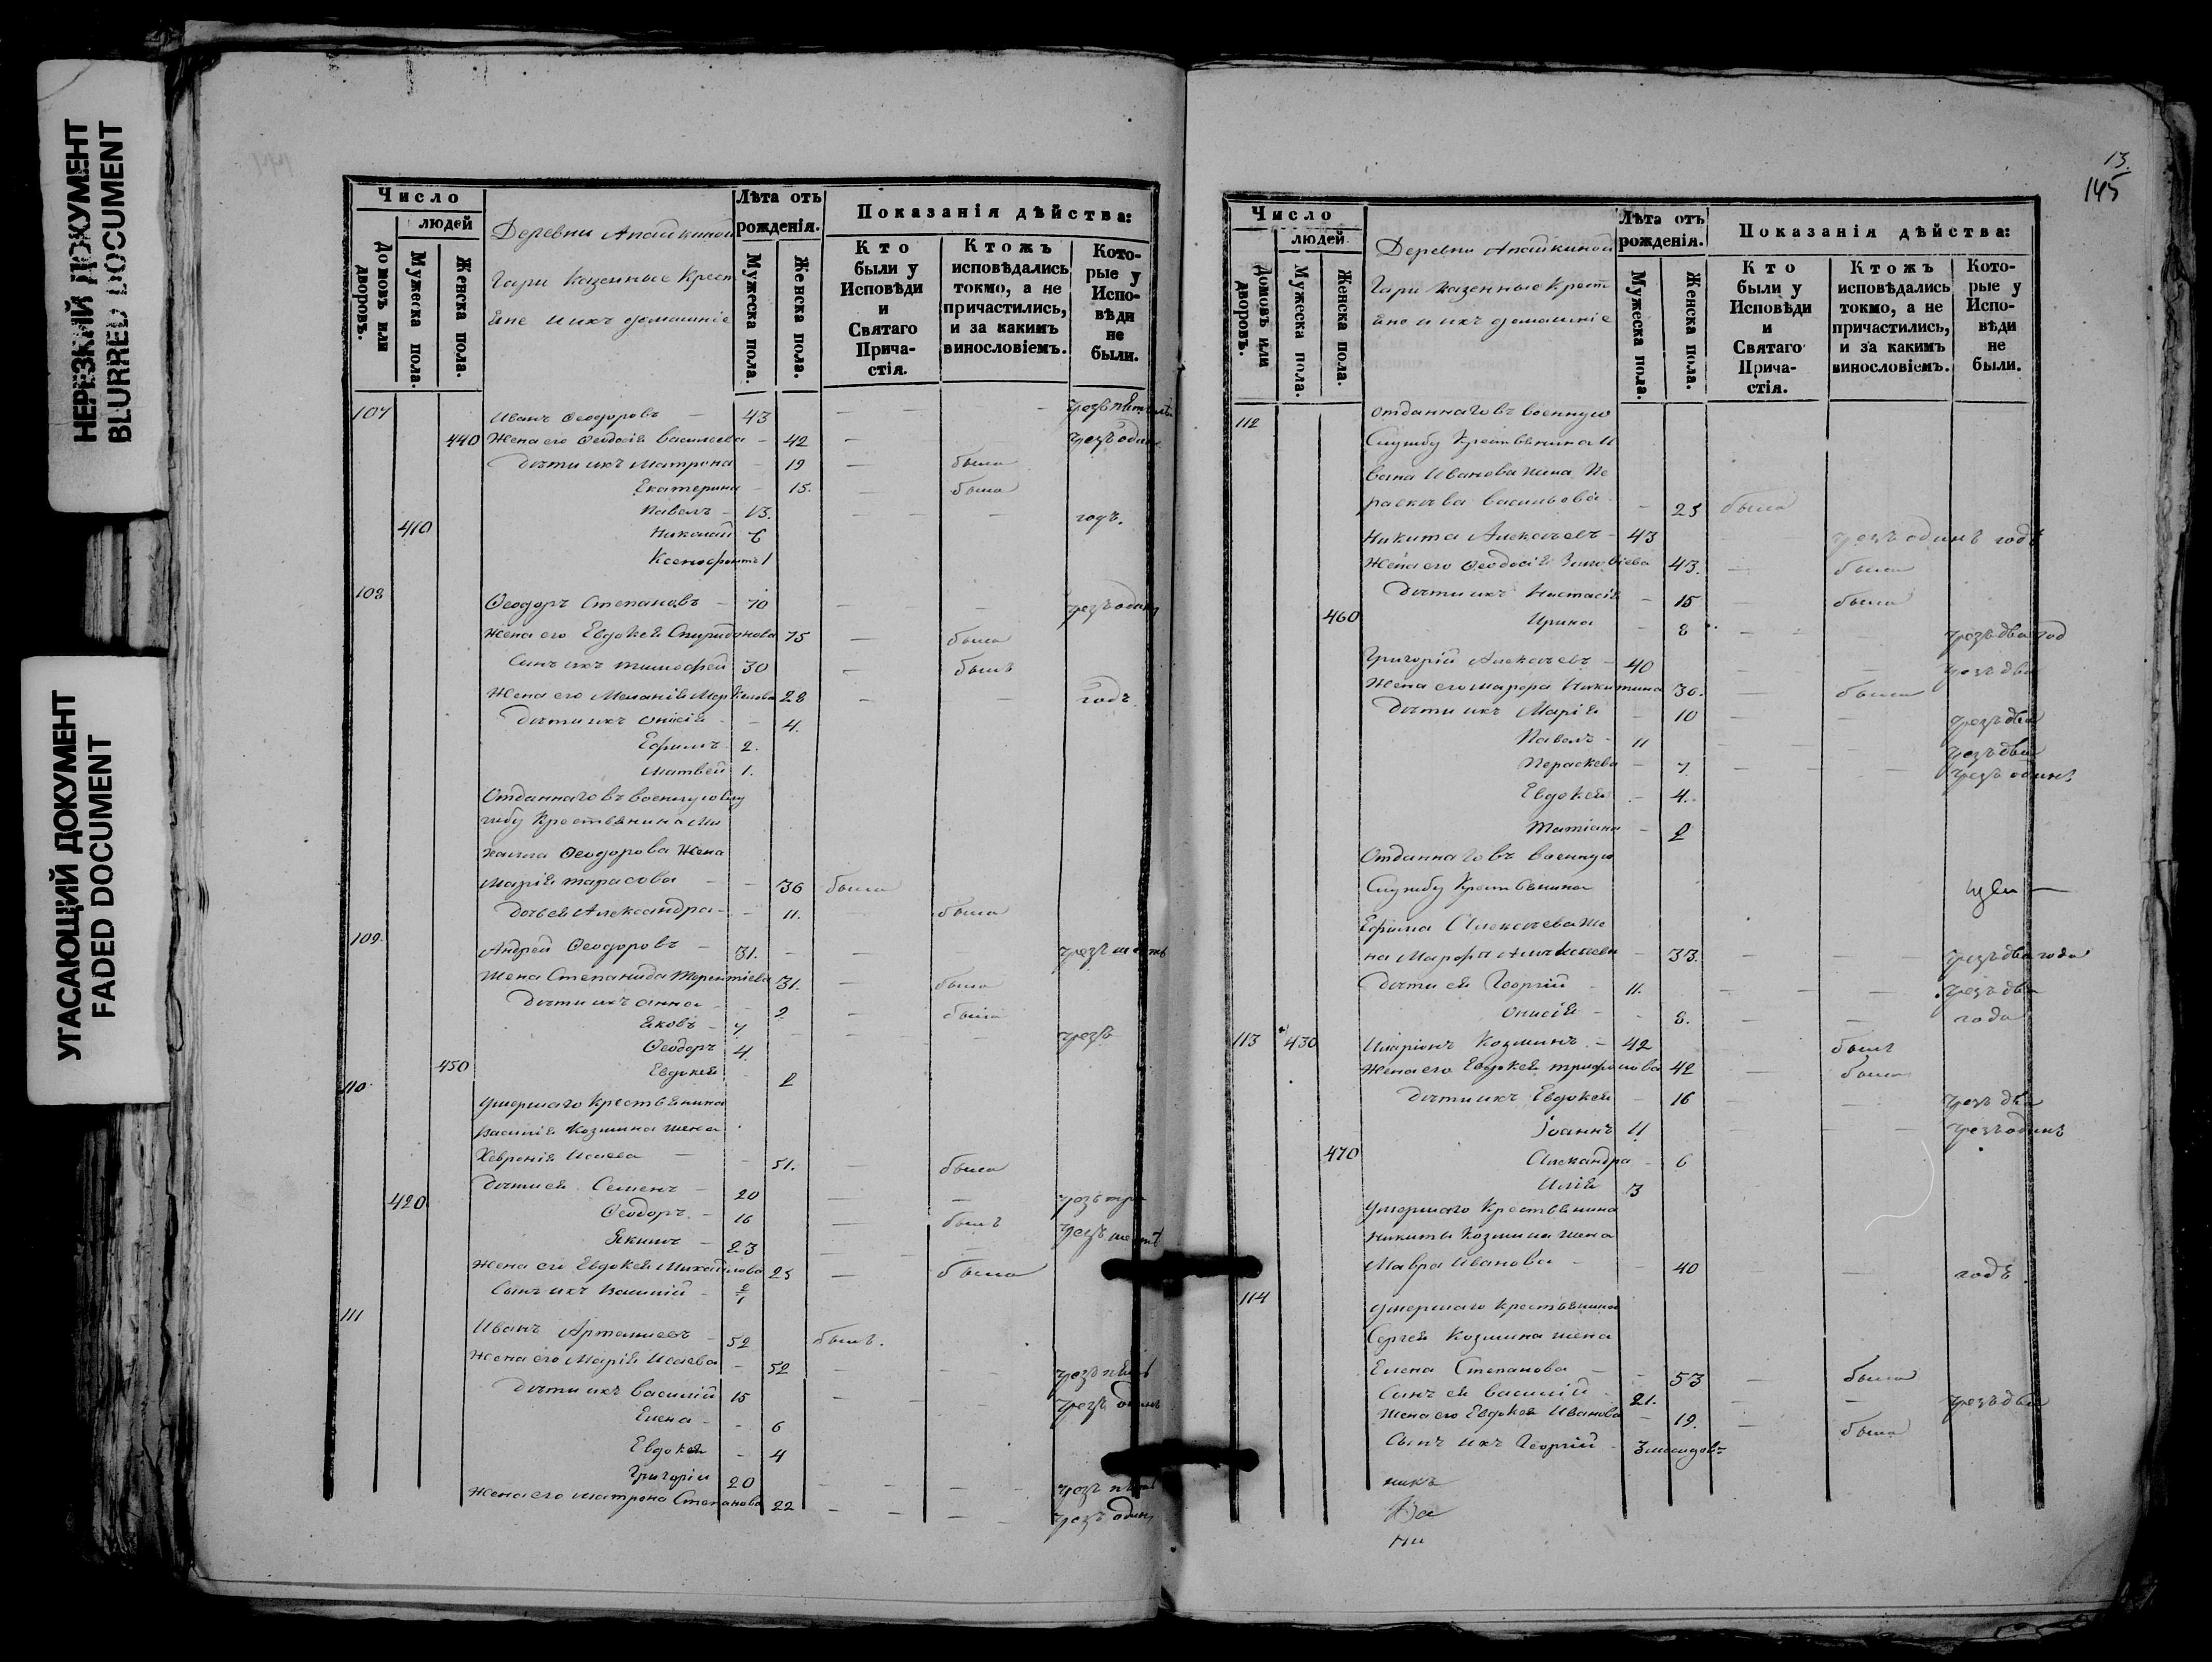 НЕРЕЗКИЙ ДОКУМЕНТ
BLURRED DOCUMENT
УГАСАЮЩИЙ ДОКУМЕНТ
FADED DOCUMENT
Число
людей
Домовъ или дворовъ.
Мужеска пола.
Женска пола.
Деревни Апашкиной
Гари казенные Крест
яне и ихъ домашніе
Лѣта отъ рожденія.
Мужеска пола.
Женска пола.
Показанія дѣйства:
Кто были у Исповѣди и Святаго Причастія.
Ктожъ исповѣдались токмо, а не причастились, и за какимъ винословіемъ.
Которые у Исповѣди не были.
107 Иванъ Ѳеодоровъ – 43 – – –
440 Жена его Ѳеодосія Васильева – 42 – чрезъ одинъ
Дѣти ихъ Матрона – 19 – была
Екатерина – 15. – была
Павелъ – 13. – – – годъ.
410 Николай 6
Ксенофонтъ 1
108 Ѳеодоръ Степановъ – 70 – – чрезъ одинъ
Жена его Евдокея Спиридонова 75 – была
Сынъ ихъ Тимофей 30 – былъ
Жена его Меланія 28 – – годъ
Дѣти ихъ Онисія – – 4.
Ефимъ 2.
Матвей 1.
Отданнаго въ военную слу
жбу Крестьянина Ми
хаила Ѳеодорова Жена
Марія Тарасова – – 36 была
Дочь ея Александра – – 11. – была
109 Андрей Ѳеодоровъ – 31. – – чрезъ шесть
Жена Степанида Терентіева 31. – была
Дѣти ихъ Анна – – 9 – была
Яковъ – 7 – – – чрезъ
Ѳеодоръ 4
450 Евдокея – 2
110 умершаго Крестьянина
Василія Козмина жена
Хевронія Исаева – – 51. была
Дѣти ея Семенъ – 20 – – чрезъ три
420 Ѳеодоръ – 16 – былъ
Якимъ – 23 – – – чрезъ шесть
Жена его Евдокея Михайлова 25 – была
Сынъ ихъ Василій –
111 Иванъ Артемиевъ – 52 былъ.
Жена его Марія Исаева – 52 – – чрезъ пять
Дѣти ихъ Василій 15 – – – чрезъ одинъ
Елена – – 6
Евдокея – 4
Григорій 20 – – – чрезъ пять
Жена его Матрона Степанова 22 – – – чрезъ одинъ
13.
145
Число
людей
Домовъ или дворовъ.
Мужеска пола.
Женска пола.
Деревни Апашкиной
Гари казенные Крест
яне и ихъ домашніе
Лѣта отъ рожденія.
Мужеска пола.
Женска пола.
Показанія дѣйства:
Кто были у Исповѣди и Святаго Причастія.
Ктожъ исповѣдались токмо, а не причастились, и за какимъ винословіемъ.
Которые у Исповѣди не были.
112 Отданнаго въ военную
Службу Крестьянина И
вана Иванова жена Пе
раскѣва Васильева – 25 была
Никита Алексѣевъ – 43 – чрезъ одинъ годъ
Жена его Ѳеодосія Зиновіева 43. – была
Дѣти ихъ Настасія – 15 – была
460 Ирина – 8 – – – чрезъ два год
Григорій Алексѣевъ – 40 – – чрезъ два
Жена его Марфа Никитина 36. – была
Дѣти ихъ Марія – 10 – – чрезъ два
Павелъ – 11 – – – чрезъ два
Пераскева – 7 – – – чрезъ одинъ
Евдокея – 4.
Татіана – 2
Отданнаго въ военную
Службу Крестьянина
Ефима Алексѣева же
на Марфа – 33. – – – чрезъ два года
Дѣти ея Георгій – 11. – – – чрезъ два
Онисія – – 8. – – года
113 430 Иларіонъ Козминъ – 42 былъ
Жена его Евдокея Трофимова 42 – была
Дѣти ихъ Евдокея – 16 – – чрезъ два
Іоаннъ 11 – – – чрезъ одинъ
470 Александра – 6
Илія 3
умершаго Крестьянина
Никиты Козмина жена
Мавра Иванова – – 40 – – годъ
114 умершаго Крестьянина
Сергея Козмина жена
Елена Степанова – – 53 – была
Сынъ ея Василій – 21. – – чрезъ два
Жена его Евдокея Иванова – 19. – была
Сынъ ихъ Георгій –